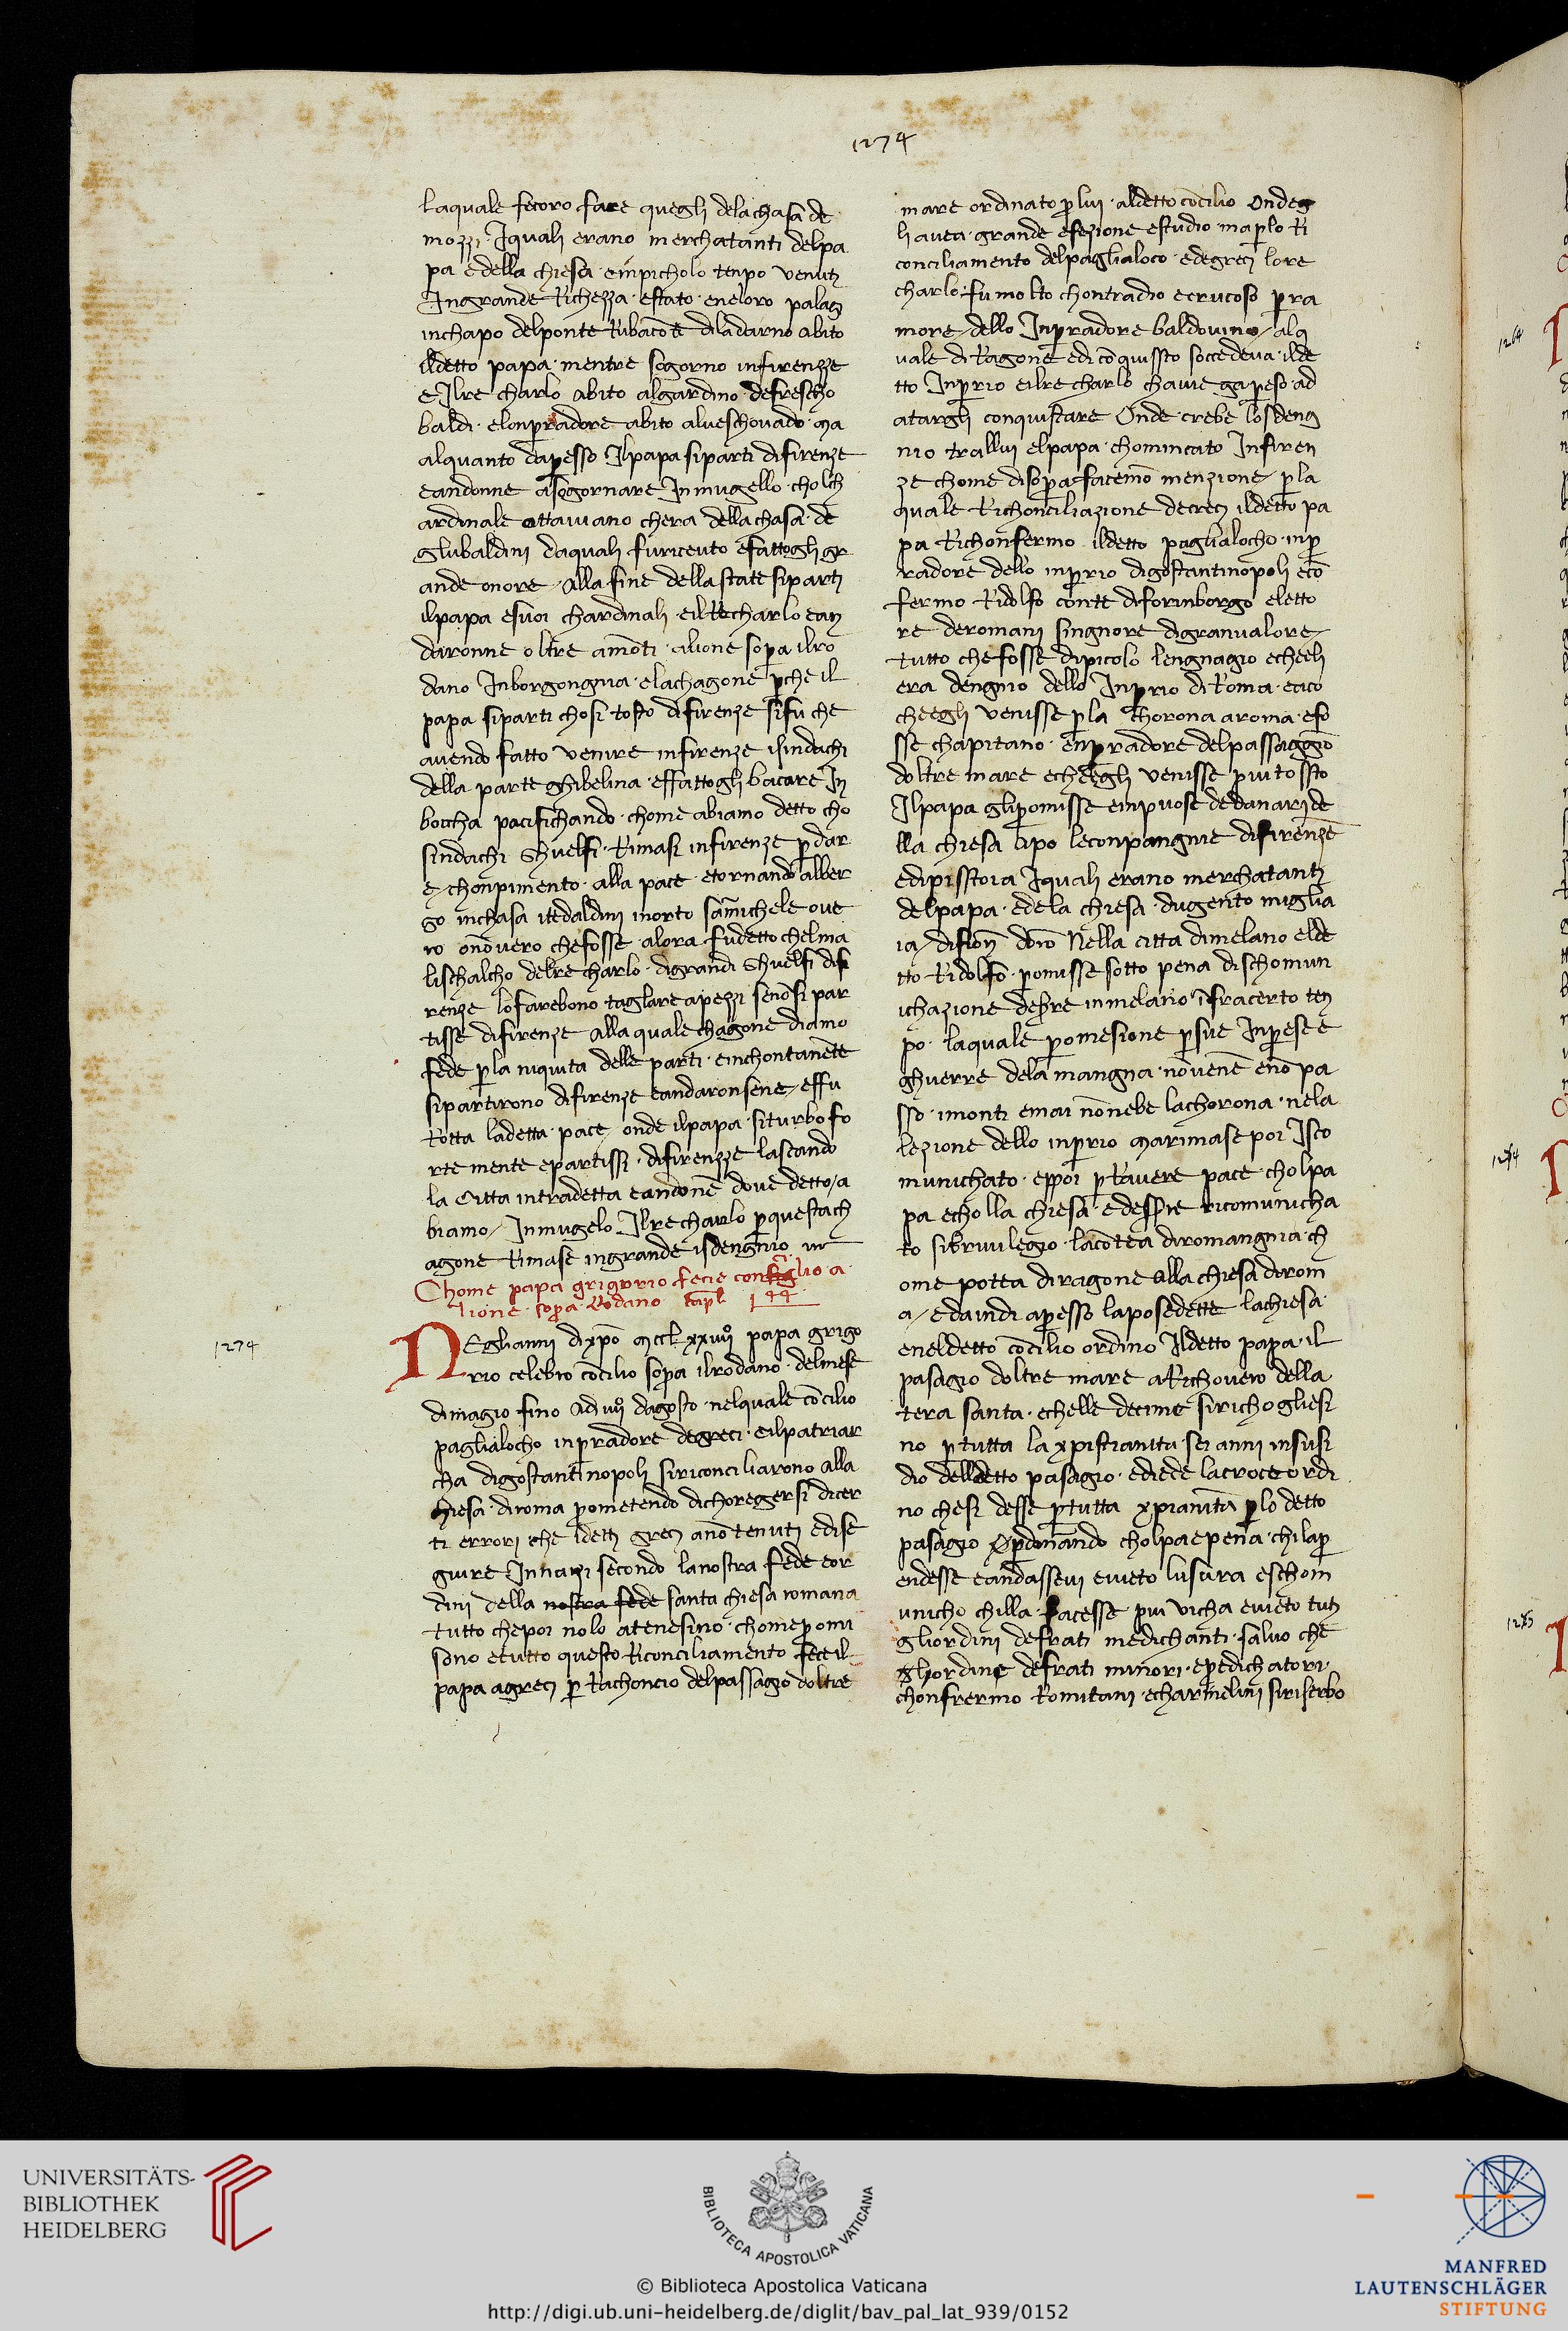 1274
laquale fecoro fare quegli delachasa de
mozzi · Iquali erano merchatanti delpa
pa edella chiesa · einpicholo tenpo venuti
Ingrande Richezza · estato · eneloro palag
inchapo delponte Rubaconte diladarno abito
ildetto papa · mentre sogorno infirenzze
e Ilre charlo abito algardino · defrescho
baldi · elonpradore abito alveschovado · ma
alquanto dapesso Ilpapa siparti difirenze
eandonne asogornare In mugello · cholch
ardinale ottaviano chera dellachasa · de
glubaldini daquali furicevto efattogli gr
ande onore · Alla fine della state siparti
ilpapa esuoi chardinali · eilRecharlo ean
daronne oltre amonti · alione sopra ilro
dano Inborgongnia · elachagone perche il
papa siparti chosi tosto difirenze sifu che
avendo fatto venire infirenze isindachi
della parte ghibelina · effattogli bacare In
boccha pacifichando · chome abiamo detto cho
sindachi Ghuelfi · Rimasi infirenze per dar
e chonpimento · alla pace · etornando alber
go inchasa itedaldini inorto samichele ove
ro onovero chefosse · alora · fudetto chelma
lischalcho delre charlo · digrandi Ghuelfi difi
renze lofarebono taglare apezzi senosi par
tisse difirenze alla quale chagone diamo
fede perla niquita delle parti · einchontanente
sipartirono difirenze eandaronsene / effu
Rotta ladetta · pace / onde ilpapa · siturbo fo
rte mente epartissi · difirenzze lascando
la citta intradetta eandone dove detto / a
biamo / In mugelo Ilre charlo perquestach
agone Rimase ingrande isdengnio
Chome papa grigorio fecie conciglio · a
lione · sopra · Rodano kapl 144
1274
NEglianni dixpo mcclxxiiii papa grigo
rio celebro concilio sopra ilrodano · delmese
dimagio fino adi dagosto · nelquale concilio
paglialocho inpradore degreci · eilpatriar
cha digostantinopoli siriconciliarono alla
chiesa · diroma prometendo dichoregersi dicer
ti errori che idetti greci anotenuti edise
guire Innanzi secondo lanostra fede eor
dini della nostra fede santa chiesa romana
tutto chepoi nolo atenesino · chomepromi
sono etutto questo Riconciliamento feceil
papa agreci per Rachoncio delpassagio doltre
mare ordinato perlui · aldetto concilio Ondeg
li avea · grande efezione estudio · maperlo Ri
conciliamento delpaglialoco · edegreci lore
charlo · fu molto chontradio ecrucoso per ra
more / dello Inpradore baldovino / alq
uale di Ragone edi conquissto soccedeva · ilde
tto Inprio eilre charlo chavie gapreso · ad
atargli conquistare Onde · crebe losdeng
nio trallui elpapa · chomincato Infiren
ze chome disopra facemo menzione / perla
quale Richonciliazione degreci ildetto pa
pa Richonfermo · ildetto paglialocho · inp
radore dello inprio digostantinopoli eco
fermo Ridolfo conte diforinborgo eletto
re deromani singnore digranvalore /
tutto che fosse dipicolo lengnagio echeeli
era dengnio dello Inprio di Roma · eaco
cheegli venisse perla chorona aroma · efo
sse chapitano · enpradore delpassaggio
doltre mare echeegli venisse piu tossto
Ilpapa glipromisse enpuose dedanari de
lla chiesa apo leconpangnie difirenze
edipisstoia Iquali erano merchatanti
delpapa · edela chiesa · dugento miglia
ia / difiorin doro Nella citta dimelano elde
tto Ridolfo · promisse sotto pena dischomun
ichazione desre inmelano ifracerto ten
po · laquale promesione persue Inprese e
ghuerre dela mangna · novene eno pa
sso · imonti emai nonebe lachorona · nela
lezione dello inprio marimase poi Isco
munichato · eppoi per Ravere pace · cholpa
pa echolla chiesa · edessre ricomunicha
to sibrivilegio · lacontea diromangnia · ch
ome potea diragone alla chiesa dirom
a / edaindi apresso laposedette lachiesa
eneldetto concilio ordino Ildetto papa · il
pasagio doltre mare aRichovero della
tera santa · echelle decime sirichogliesi
no pertutta la xpistianita · sei anni insusi
dio delldetto pasagio · ediede lacroce eordi
no chesi desse pertutta xpianita perlo detto
pasagio perdonando cholpaepena · chilapr
endesse eandassevi evieto lusura eschom
unicho chilla facesse piu vicha evieto tuti
gliordini defrati medichanti · salvo che
gliordine defrati minori · epredichatori ·
chonfrermo Romitani · echarmelini siriserbo
1274
1285
UNIVERSITÄTS-
BIBLIOTHEK
HEIDELBERG
BIBLIOTECA APOSTOLICA VATICANA
© Biblioteca Apostolica Vaticana
http://digi.ub.uni-heidelberg.de/diglit/bav_pal_lat_939/0152
MANFRED
LAUTENSCHLÄGER
STIFTUNG